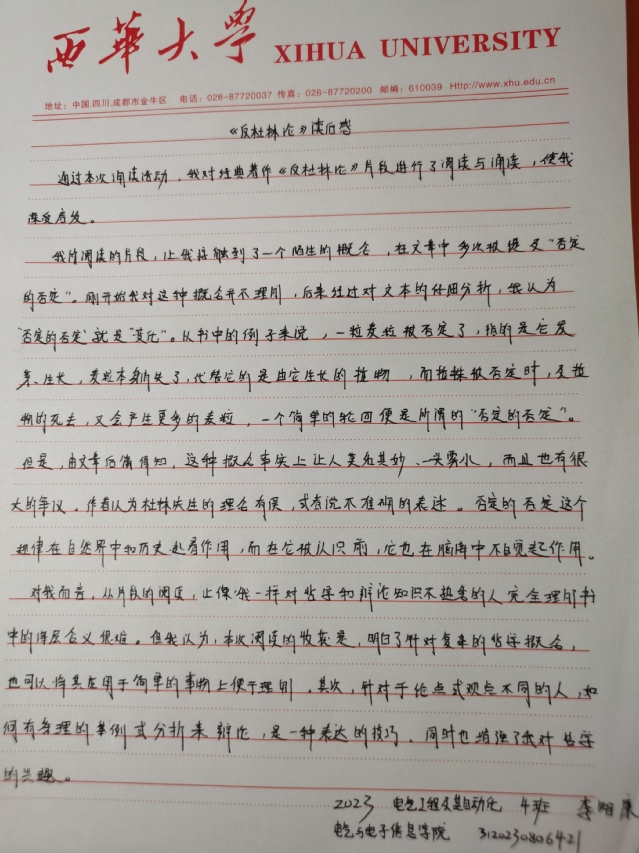 西華大學 XIHUA UNIVERSITY
地址：中国.四川.成都市金牛区 电话：028-87720037 传真：028-87720200 邮编：610039 Http://www.xhu.edu.cn
《反杜林论》读后感
通过本次阅读活动，我对经典著作《反杜林论》片段进行了阅读与诵读，使我
深受启发。
我所阅读的片段，让我接触到了一个陌生的概念，在文章中多次被提及“否定
的否定”。刚开始我对这种概念并不理解，后来经过对文本的仔细分析，我认为
“否定的否定”就是“变化”。从书中的例子来说，一粒麦粒被否定了，指的是它发
芽、生长，麦粒本身消失了，代替它的是由它生长的植物，而植株被否定时，及植
物的死去，又会产生更多的麦粒，一个简单的轮回便是所谓的“否定的否定”。
但是，由文章后篇得知，这种概念事实上让人莫名其妙、一头雾水，而且也有很
大的争议。作者认为杜林先生的理念有误，或者说不准确的表述。否定的否定这个
规律在自然界中和历史起着作用，而在它被认识前，它也在脑海中不自觉起作用。
对我而言，从片段的阅读，让像我一样对哲学和辩论知识不熟悉的人完全理解书
中的深层含义很难。但我认为，本次阅读的收获是，明白了针对复杂的哲学概念，
也可以将其应用于简单的事物上便于理解。其次，针对于论点或观点不同的人，如
何有条理的举例或分析来辩论，是一种表达的技巧。同时也增强了我对哲学
的兴趣。
2023 电气工程及其自动化 4班 李 康
电气与电子信息学院 3120230806421